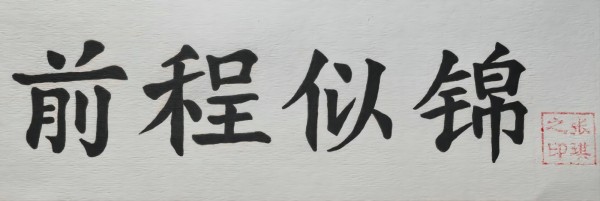 前程似锦
张琪之印